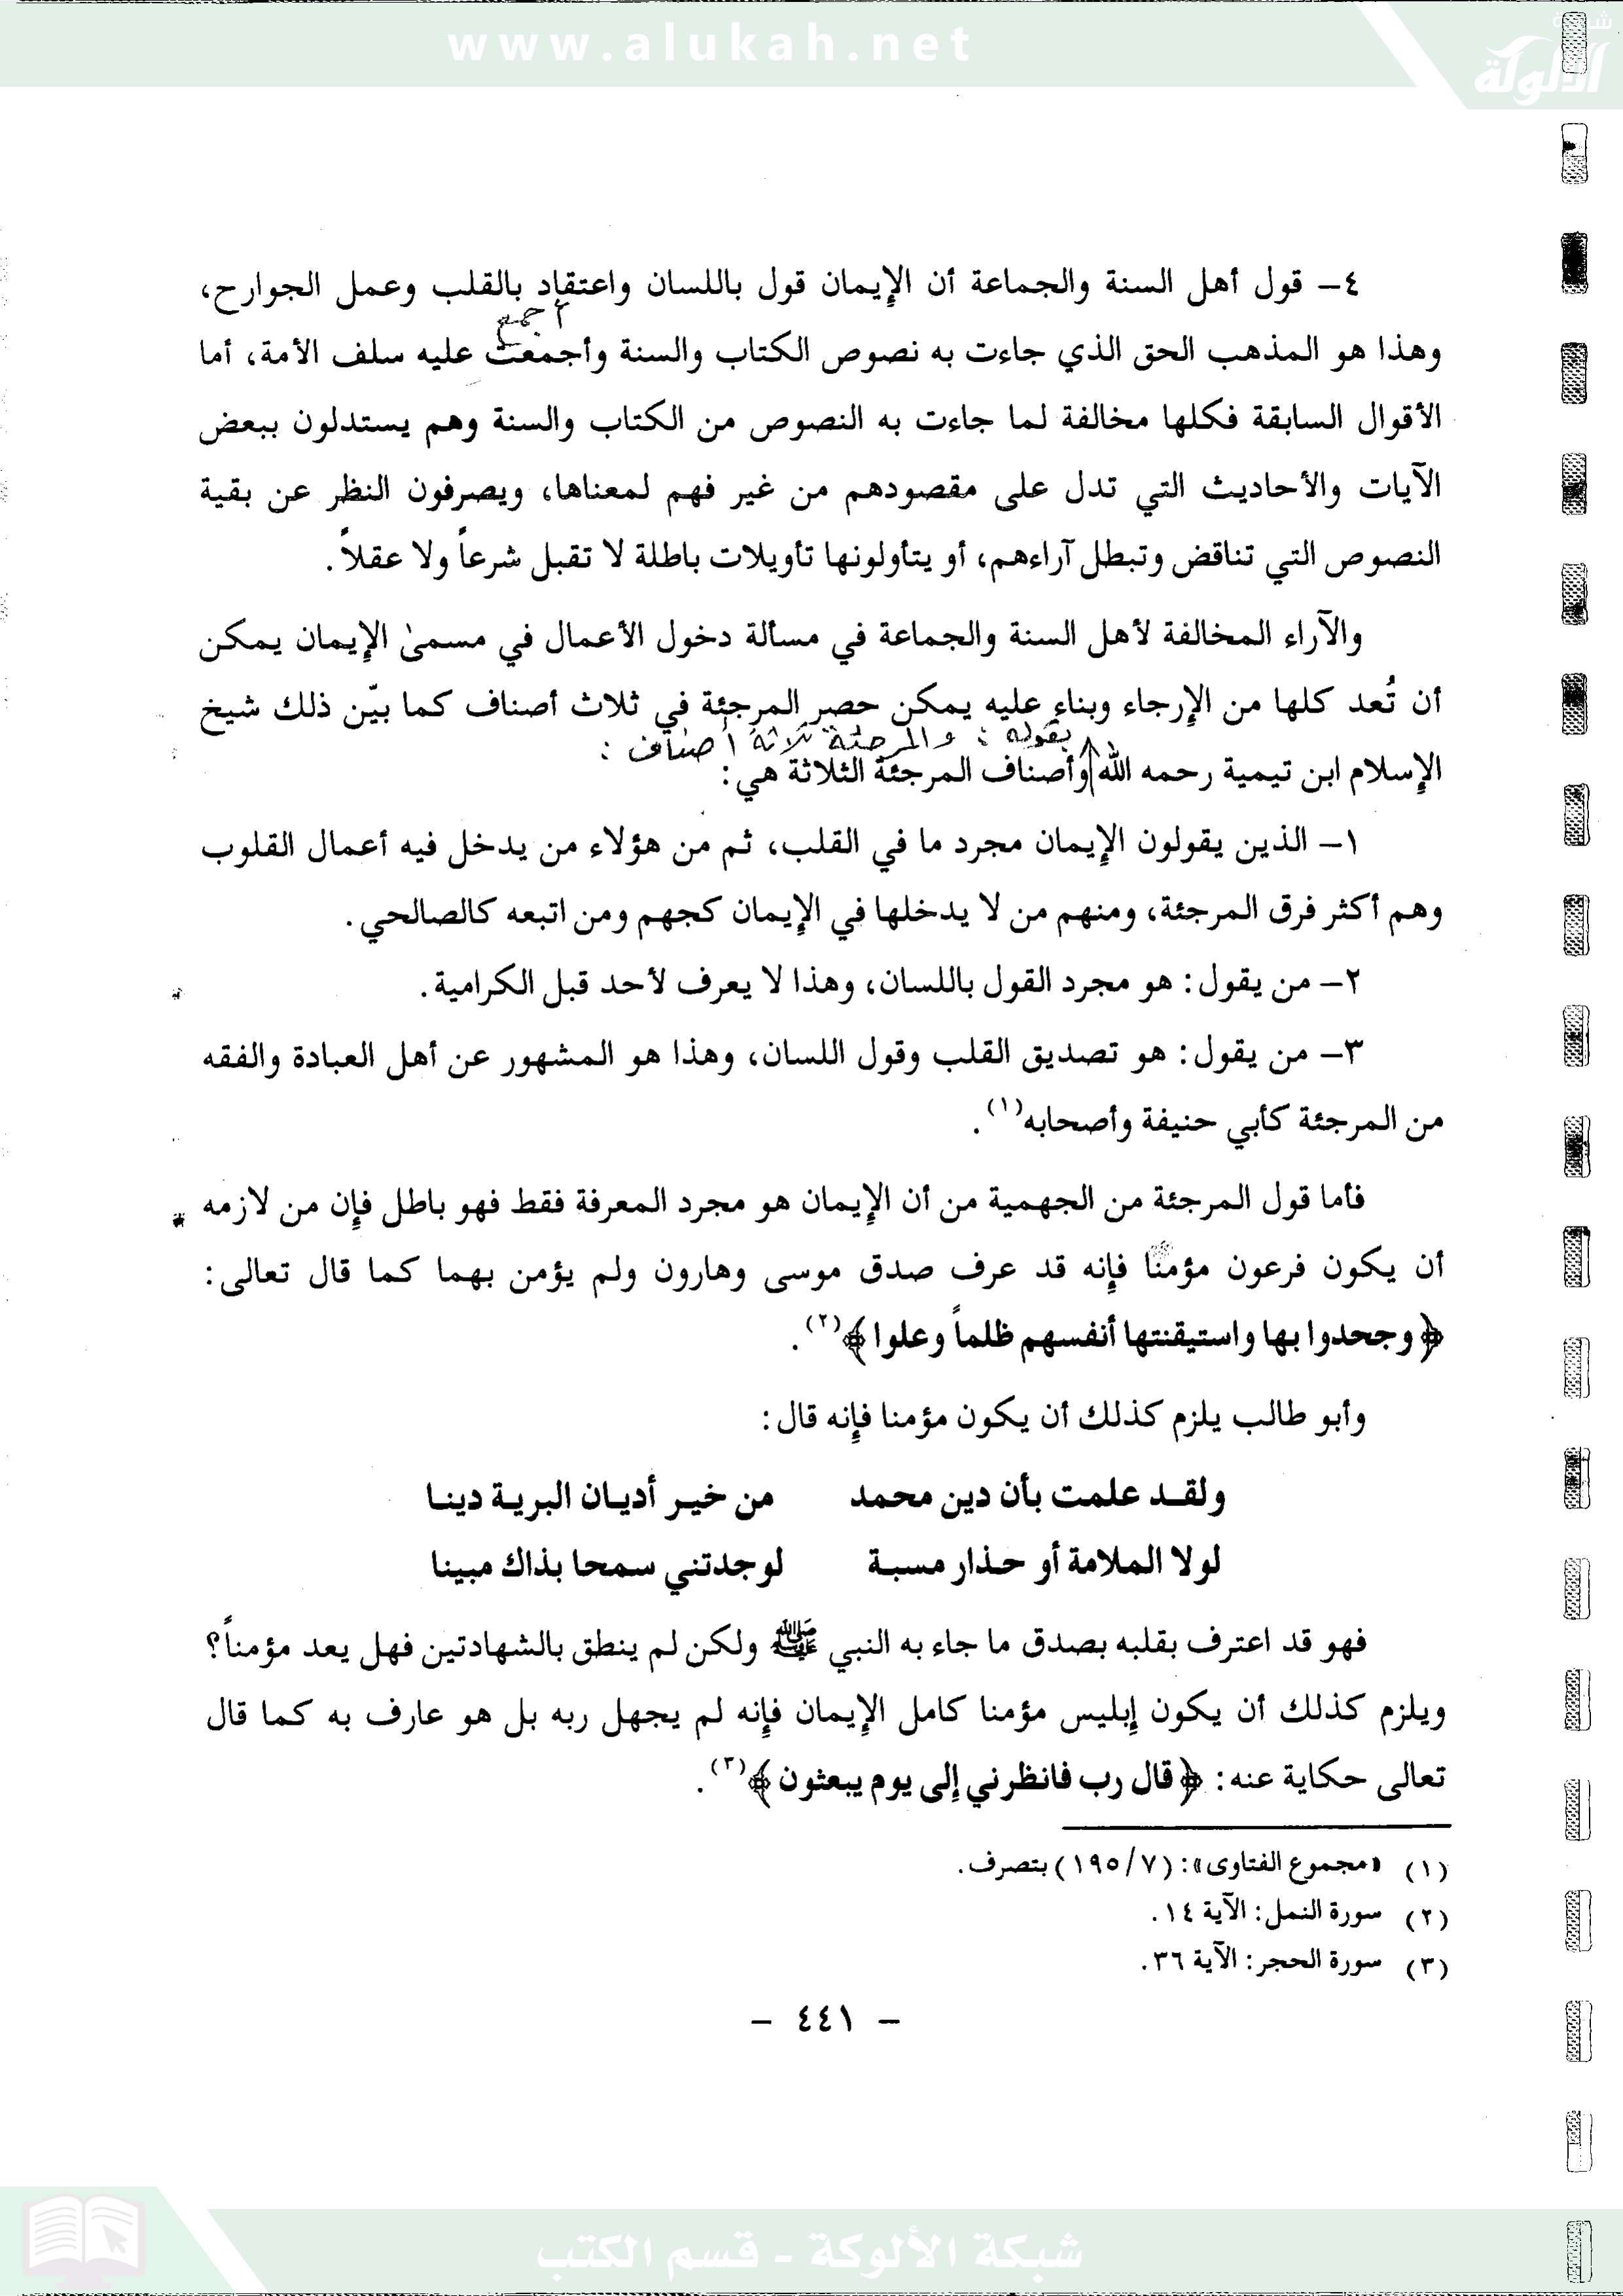 www.alukah.net
شبكة
الألوكة
٤- قول أهل السنة والجماعة أن الإيمان قول باللسان واعتقاد بالقلب وعمل الجوارح،
أجمع
وهذا هو المذهب الحق الذي جاءت به نصوص الكتاب والسنة وأجمعت عليه سلف الأمة، أما
الأقوال السابقة فكلها مخالفة لما جاءت به النصوص من الكتاب والسنة وهم يستدلون ببعض
الآيات والأحاديث التي تدل على مقصودهم من غير فهم لمعناها، ويصرفون النظر عن بقية
النصوص التي تناقض وتبطل آراءهم، أو يتأولونها تأويلات باطلة لا تقبل شرعاً ولا عقلاً.
والآراء المخالفة لأهل السنة والجماعة في مسألة دخول الأعمال في مسمىٰ الإيمان يمكن
أن تُعد كلها من الإرجاء وبناء عليه يمكن حصر المرجئة في ثلاث أصناف كما بيّن ذلك شيخ
بقوله: والمرجئة ثلاثة أصناف:
الإسلام ابن تيمية رحمه الله وأصناف المرجئة الثلاثة هي:
١- الذين يقولون الإيمان مجرد ما في القلب، ثم من هؤلاء من يدخل فيه أعمال القلوب
وهم أكثر فرق المرجئة، ومنهم من لا يدخلها في الإيمان كجهم ومن اتبعه كالصالحي.
٢- من يقول: هو مجرد القول باللسان، وهذا لا يعرف لأحد قبل الكرامية.
٣- من يقول: هو تصديق القلب وقول اللسان، وهذا هو المشهور عن أهل العبادة والفقه
من المرجئة كأبي حنيفة وأصحابه(١).
فأما قول المرجئة من الجهمية من أن الإيمان هو مجرد المعرفة فقط فهو باطل فإن من لازمه
أن يكون فرعون مؤمنًا فإنه قد عرف صدق موسى وهارون ولم يؤمن بهما كما قال تعالى:
﴿وجحدوا بها واستيقنتها أنفسهم ظلماً وعلوا﴾(٢).
وأبو طالب يلزم كذلك أن يكون مؤمنا فإنه قال:
ولقـد علمت بأن دين محمد من خيـر أديـان البريـة دينـا
لولا الملامة أو حـذار مسبـة لوجدتني سمحا بذاك مبينا
فهو قد اعترف بقلبه بصدق ما جاء به النبي ﷺ ولكن لم ينطق بالشهادتين فهل يعد مؤمناً؟
ويلزم كذلك أن يكون إبليس مؤمنا كامل الإيمان فإنه لم يجهل ربه بل هو عارف به كما قال
تعالى حكاية عنه: ﴿قال رب فانظرني إلى يوم يبعثون﴾(٣).
(١) «مجموع الفتاوى»: (١٩٥/٧) بتصرف.
(٢) سورة النمل: الآية ١٤.
(٣) سورة الحجر: الآية ٣٦.
- ٤٤١ -
شبكة الألوكة - قسم الكتب